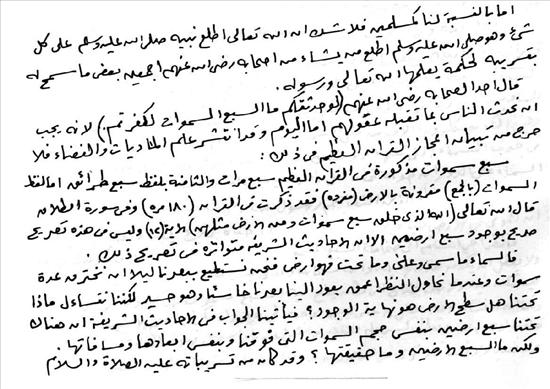 اما بالنسبة لنا كمسلمين فلا شك ان الله تعالى اطلع نبيه صلى الله عليه وسلم على كل
شئ وهو صلى الله عليه وسلم اطلع من يشاء من اصحابه رضي الله عنهم اجمعين بعض ما سمح له
بتسريبه لحكمة يعلمها الله تعالى ورسوله.
قال احد الصحابة رضي الله عنهم (لو حدثتكم ما السبع السموات لكفرتم.) لانه يجب
ان تحدث الناس بما تقبله عقولهم اما اليوم وقد انتشر علم الماديات والفضاء فلا
حرج من تبيان اعجاز القرآن العظيم في ذلك:
سبع سموات مذكورة في القرآن العظيم سبع مرات والثامنة بلفظ سبع طرائق اما لفظ
السموات (بالجمع) مقرونة بالارض (مفرده) فقد ذكرت في القرآن (١٨٠ مره) وفي سورة الطلاق
قال الله تعالى (الله الذي خلق سبع سموات ومن الارض مثلهن) الاية (١٢) وليس في هذه تصريح
صريح بوجود سبع ارضين الا ان الاحاديث الشريفة متواترة في تصريح ذلك.
فالسماء ما سمى وعلى وما تحت فهو ارض فنحن نستطيع ببصرنا ليلا ان نخترق عدة
سموات وعندما نحاول النظر اعمق يعود الينا بصرنا خاسئا وهو حسير لكننا نتساءل ماذا
تحتنا هل سطح الارض هو نهاية الوجود؟ فيأتينا الجواب في الاحاديث الشريفة ان هناك
تحتنا سبع ارضين بنفس حجم السموات التي فوقنا وبنفس ابعادها ومسافاتها.
ولكن ما السبع الارضين وما حقيقتها؟ وقد كان من تسريباته عليه الصلاة والسلام